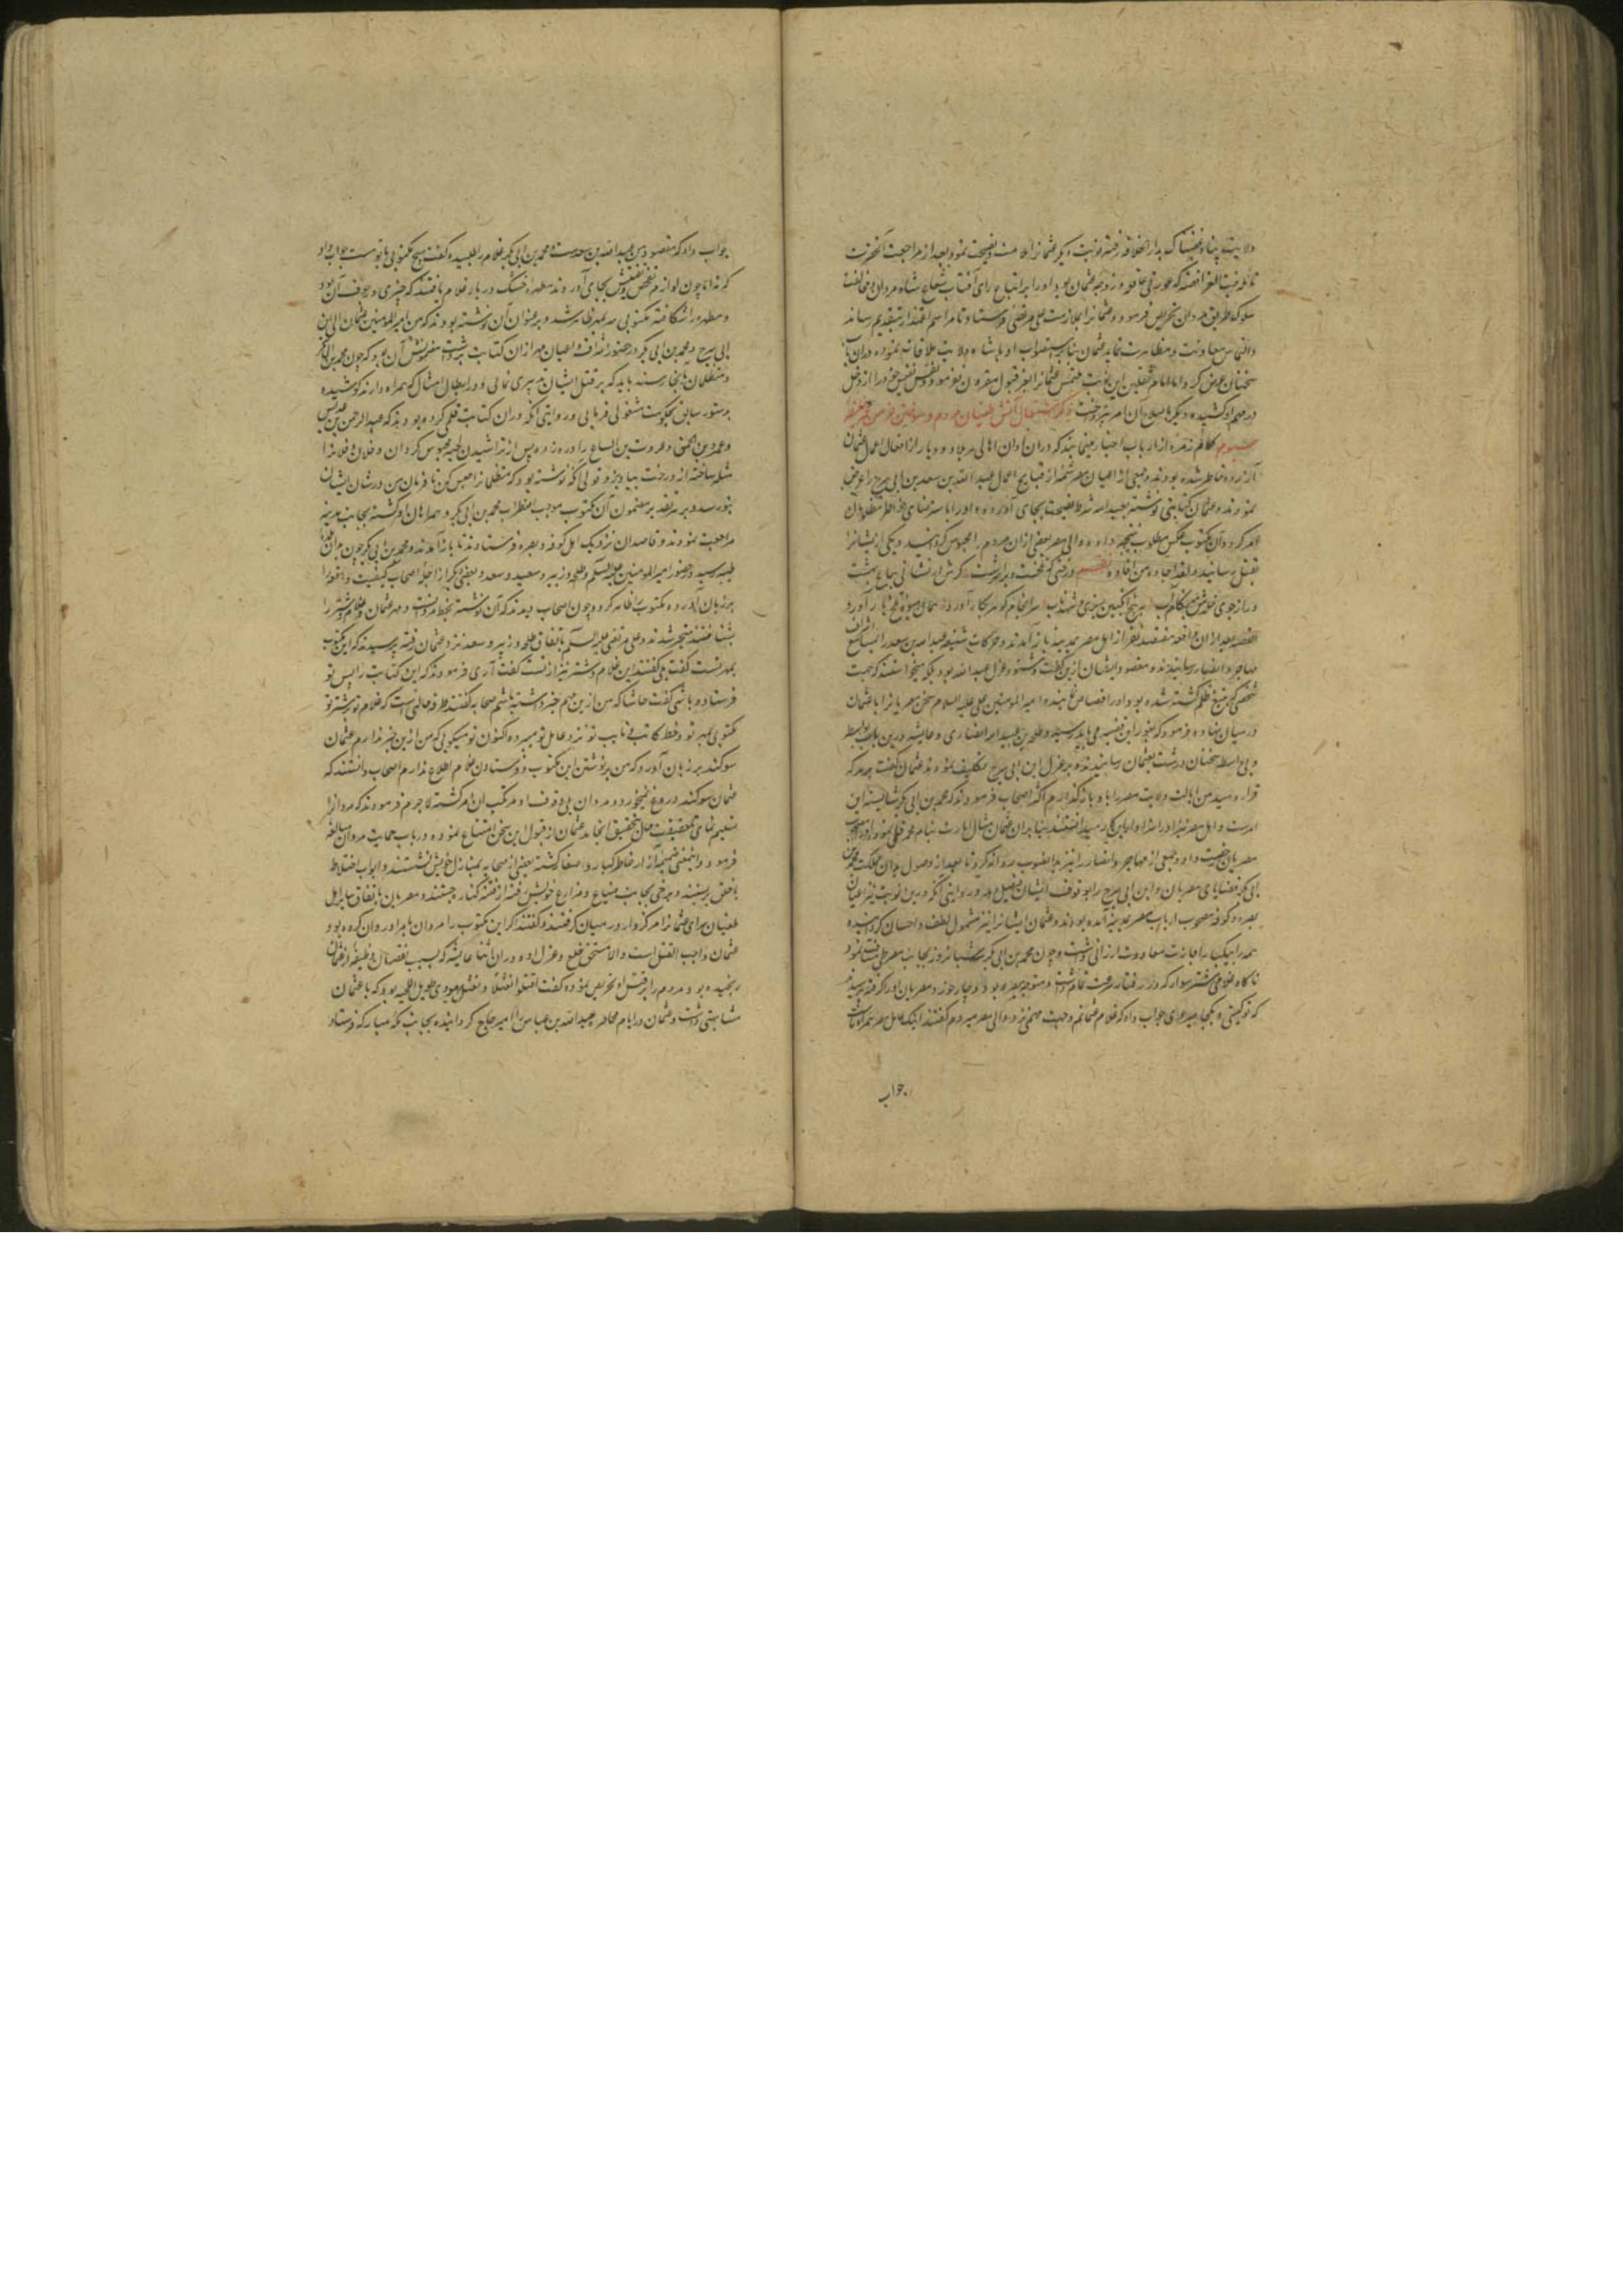 ولایت پناه غضبناک بدار الخلافه رفته نوبت دیگر عثمانرا ملامت و نصیحت نمود و بعد از مراجعت آنحضرت
نائله بنت الفرافصه که عورتی عاقله و زوجه عثمان بود او را بر اتباع رای آفتاب شعاع شاه مردان و مخالفت
سلوک طریق مروان تحریض فرمود و عثمان او را بملازمت علی مرتضی فرستاد تا مراسم اعتذار بتقدیم رساند
والتماس معاونت و مظاهرت نماید عثمان بنابر استصواب او با شاه ولایت ملاقات نموده دران باب
سخنان عرض کرد اما امام الثقلین این نوبت ملتمس عثمانرا بعز قبول مقرون نفرمود و نفس نفیس خود را از دخل
در مهم او کشیده دیگر باصلاح آن امر نپرداخت ذکر اشتعال آتش طغیان مردم و سوختن خرمن عمر خلیفه
سیوم کلام زمره از ارباب اخبار مینماید که دران اوان اهالی هر بلاد و دیار از افعال عمال عثمان
آزرده خاطر شده بودند و جمعی از اعیان مصر شمه از قبایح اعمال عبد الله بن سعد بن ابی سرح را عرض
نمودند و عثمان کتابتی نوشته بعبد الله شرط نصیحت بجای آورد و او را باسترضای خواطر مظلومان
امر کرد و آن مکتوب عکس مطلوب نتیجه داده والی مصر بعضی ازان مردم را محبوس گردانید و یکی از ایشانرا
بقتل رسانید و لقد اجاد من افاده نظم درختی که تلخست ویرا سرشت گرش در نشانی بباغ بهشت
ور از جوی خلدش بهنگام آب به بیخ انگبین ریزی و شهد ناب سرانجام گوهر بکار آورد همان میوه تلخ بار آورد
القصه بعد ازان واقعه هفتصد نفر از اهل مصر بمدینه باز آمدند و حرکات شنیعه عبد الله بن سعد را بمسامع اشراف
مهاجر و انصار رسانیدند و مقصود ایشان ازین گفت و شنود عزل عبد الله بود بلکه میخواستند که جهت
شخصی که بتیغ ظلم کشته شده بود او را قصاص نمایند و امیر المؤمنین علی علیه السلام سخن مصریانرا با عثمان
در میان نهاده فرمود که بغور این قضیه می باید رسید و طلحه بن عبید الله انصاری و عایشه درین باب بواسطه
و بی واسطه سخنان درشت بعثمان رسانیدند و بر عزل ابن ابی سرح تکلیف نمودند عثمان گفت هر که
قرار دهید من ایالت ولایت مصر را باو بازگذارم اکثر اصحاب فرمودند که محمد بن ابی بکر شایسته این
امرست و اهل مصر نیز او را سزاوار این کار میدانستند بنابران عثمان مثال امارت بنام محمد قلمی نمود و او را مصحوب
مصریان رخصت داد و جمعی از مهاجر و انصار را نیز بدانصوب روانه کرد تا بعد از وصول بدان مملکت محمد بن
ابی بکر قضایای مصریان و ابن ابی سرح را بوقوف ایشان فیصل دهد و روایتی آنکه درین نوبت نیز اعیان
بصره و کوفه مصحوب ارباب مصر بمدینه آمده بودند و عثمان ایشانرا نیز مشمول لطف و احسان گردانیده
همه را بیکبار اجازت معاودت ارزانی داشت و چون محمد بن ابی بکر سه شبانروز بجانب مصر طی مسافت نمود
ناگاه غلامی شتر سوار که در رفتار سرعت تمام داشت و متوجه مصر بود دوچار خورد و مصریان او را گرفته پرسیدند
که تو کیستی و بکجا میروی جواب داد که غلام عثمانم و جهت مهمی نزد والی مصر میروم گفتند اینک عامل مصر همراه ماست
جواب
جواب داد که مقصود من عبد الله بن سعدست و محمد بن ابی بکر غلام را طلبیده گفت هیچ مکتوبی با توست جواب داد
که نه اما چون لوازم تفحص و تفتیش بجای آوردند مطهره خشک در بار غلام یافتند که چیزی در جوف آن بود
و مطهره را شکافته مکتوبی سر بمهر ظاهر شد و بر عنوان آن نوشته بودند که من امیر المؤمنین عثمان الی ابن
ابی سرح و محمد بن ابی بکر در حضور اشراف و اعیان مهر ازان کتابت برداشت مضمونش آن بود که چون محمد بن ابی بکر
و متظلمان بآنجا رسند باید که بر قتل ایشان دلیری نمائی و در ابطال مثال که همراه دارند کوشیده
بدستور سابق بحکومت مشغولی فرمایی و روایتی آنکه دران کتابت قلمی کرده بودند که عبد الرحمن بن عدیس
و عمرو بن الحمق و عروه بن البیاع را دره زده پس از تراشیدن لحیه محبوس گردان و فلان و فلانرا
مثله ساخته از درخت بیاویز و قولی آنکه نوشته بود که متظلمانرا حبس کن تا فرمان من در شان ایشان
بتو رسد و بر هر تقدیر مضمون آن مکتوب موجب اضطراب محمد بن ابی بکر و همراهان او گشته بجانب مدینه
مراجعت نمودند و قاصدان نزدیک اهل کوفه و بصره فرستادند تا باز آمدند و محمد بن ابی بکر چون بدان بلده
طیبه رسید در حضور امیر المؤمنین علی علیه السلم و طلحه و زبیر و سعید و سعد و بعضی دیگر از اجله اصحاب کیفیت واقعه را
بر زبان آورده مکتوب را ظاهر کرد و چون اصحاب دیدند که آن نوشته بخط مروانست و مهر عثمان و غلام و شتر را
بشناختند متحیر شدند و علی مرتضی علیه السلم باتفاق طلحه و زبیر و سعد نزد عثمان رفته پرسیدند که این مکتوب
بمهر تست گفت بلی گفتند این غلام و شتر نیز از تست گفت آری فرمودند که این کتابت را پس تو
فرستاده باشی گفت حاشا که من ازین مهم خبر داشته باشم صحابه گفتند طرفه حالتی است که غلام تو بر شتر تو
مکتوبی بمهر تو و خط کاتب تو بنایب تو نزد عامل تو میبرده اکنون تو میگویی که من ازین خبر ندارم عثمان
سوگند بر زبان آورد که من بر نوشتن این مکتوب و فرستادن غلام اطلاع ندارم اصحاب دانستند که
عثمان سوگند دروغ نمیخورد و مروان بی وقوف او مرتکب آن امر گشته لاجرم فرمودند که مروانرا
تسلیم نمای تا حقیقت حال بتحقیق انجامد عثمان از قبول این سخن امتناع نموده در باب حمایت مروان مبالغه
فرمود و این معنی ضمیمه آزار خاطر کبار و صغار گشته بعضی از صحابه بمنازل خویش نشستند و ابواب اختلاط
با خلق بربستند و برخی بجانب ضیاع و مزارع خویش رفته از فتنه کنار جستند و مصریان باتفاق سایر اهل
طغیان سرای عثمانرا مرکزوار در میان گرفتند و گفتند اگر این مکتوب را مروان بامر او روان کرده بود
عثمان واجب القتل است و الا مستحق خلع و عزل و در دران اثنا عایشه که بسبب نقصان وظیفه از عثمان
رنجیده بود مردم را بر قتل او تحریص نموده گفت اقتلوا نعثلا و نعثل یهودی طویل اللحیه بود که با عثمان
مشابهتی داشت و عثمان در ایام محاصره عبد الله بن عباس را امیر حاج گردانیده بجانب مکه مبارکه فرستاد